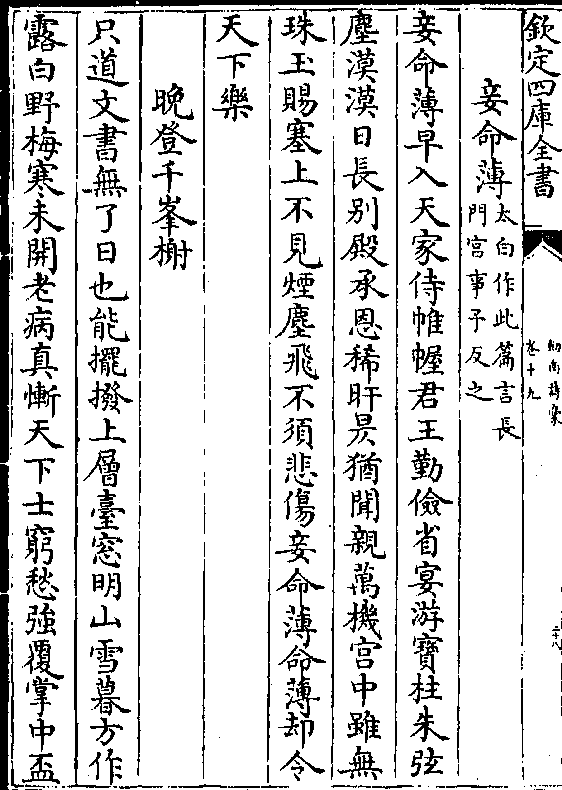 欽定四庫全書
劒南詩稾
卷十九
二十八
妾命薄太白作此篇言長
門宮事予反之
妾命薄早入天家侍帷幄君王勤儉省宴游寶柱朱弦
塵漠漠日長别殿承恩稀旰昃猶聞親萬機宫中雖無
珠玉賜塞上不見煙塵飛不須悲傷妾命薄命薄却令
天下樂
晩登千峯榭
只道文書無了日也能擺撥上層臺窓明山雪暮方作
露白野梅寒未開老病真慚天下士窮愁強覆掌中盃